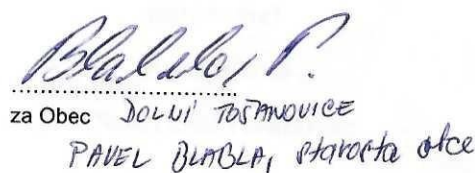 Blabla, P.
za Obec DOLNÍ TOŠANOVICE
PAVEL BLABLA, starosta obce